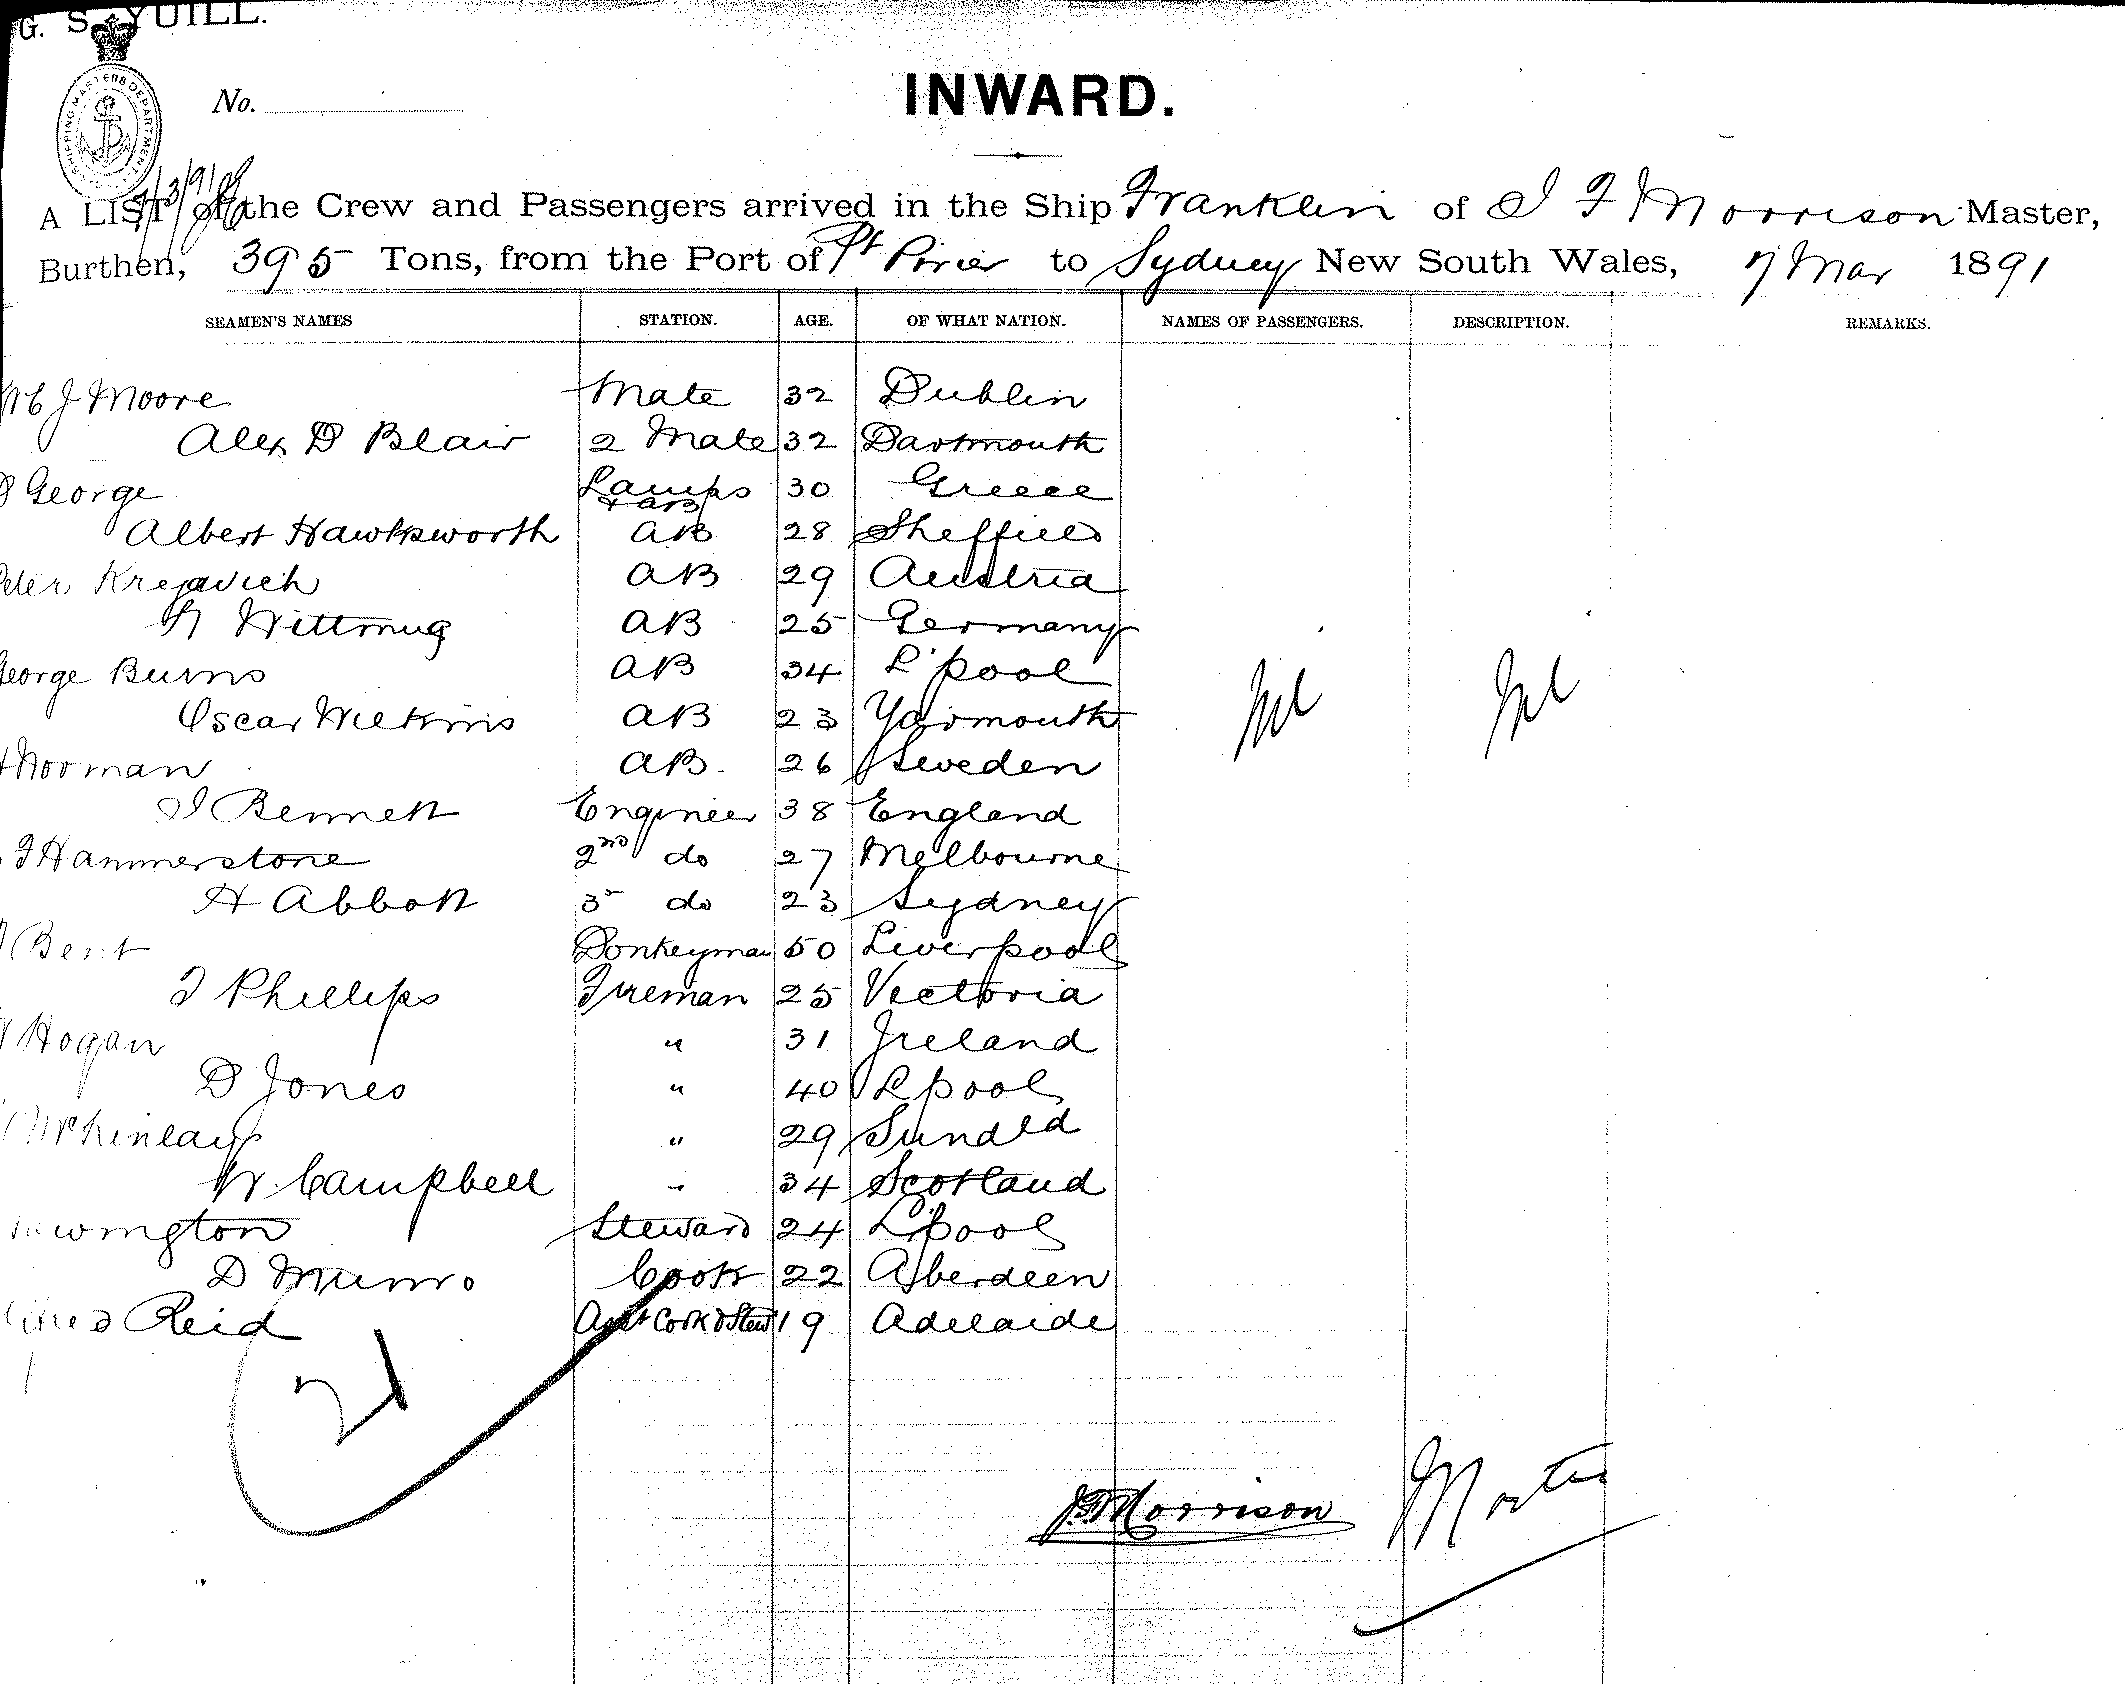 G. S. YUILL.
SHIPPING MASTERS DEPARTMENT
No.
INWARD.
7/3/91
A LIST of the Crew and Passengers arrived in the Ship Franklin of J F Morrison Master,
Burthen, 395 Tons, from the Port of Pt Pirier to Sydney New South Wales, 7 Mar 1891
SEAMEN'S NAMES STATION. AGE. OF WHAT NATION. NAMES OF PASSENGERS. DESCRIPTION. REMARKS.
J Moore Mate 32 Dublin
Alex D Blair 2 Mate 32 Dartmouth
George Lamps & AB 30 Greece
Albert Hawksworth AB 28 Sheffield
Peter AB 29 Austria
Wittmug AB 25 Germany
George Burns AB 34 L'pool Nil Nil
Oscar Wilkins AB 23 Yarmouth
Norman AB. 26 Sweden
J Bennett Engineer 38 England
Hammerstone 2nd do 27 Melbourne
H Abbott 3r do 23 Sydney
Bent Donkeyman 50 Liverpool
J Phillips Fireman 25 Victoria
Hogan " 31 Ireland
D Jones " 40 Lpool
McKinlay " 29 Sundld
W. Campbell " 34 Scotland
Steward 24 L'pool
D Munro Cook 22 Aberdeen
Reid Asst Cook & Stew 19 Adelaide
21
JF Morrison Master